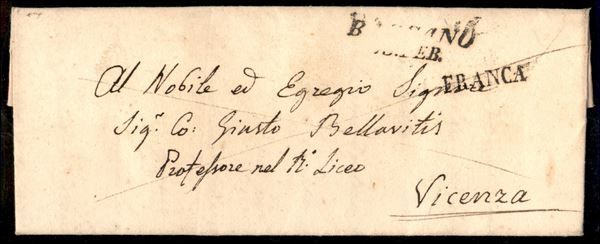 FEB.
FRANCA
Al Nobile ed Egregio
Sigr. Co: Giusto Bellavitis
Professore nel R. Liceo
Vicenza